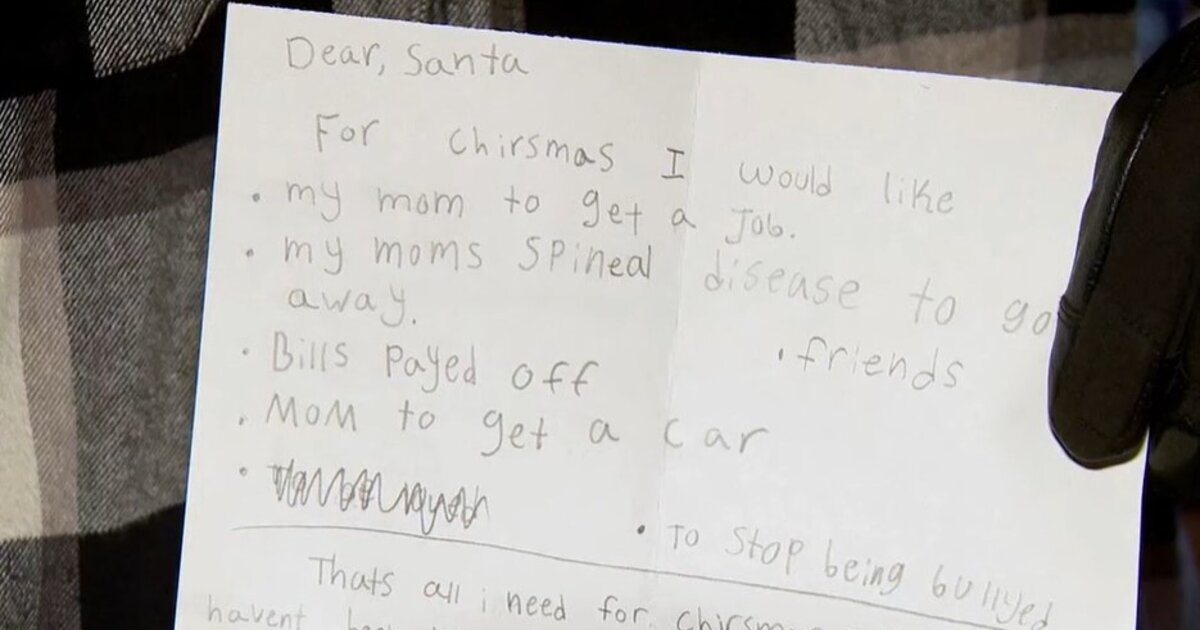 Dear, Santa
For chirsmas I would like
• my mom to get a Job.
• my moms spineal disease to go
away.
• Bills payed off
• friends
• Mom to get a car
• To stop being bullyed
Thats all i need for chirsm
havent